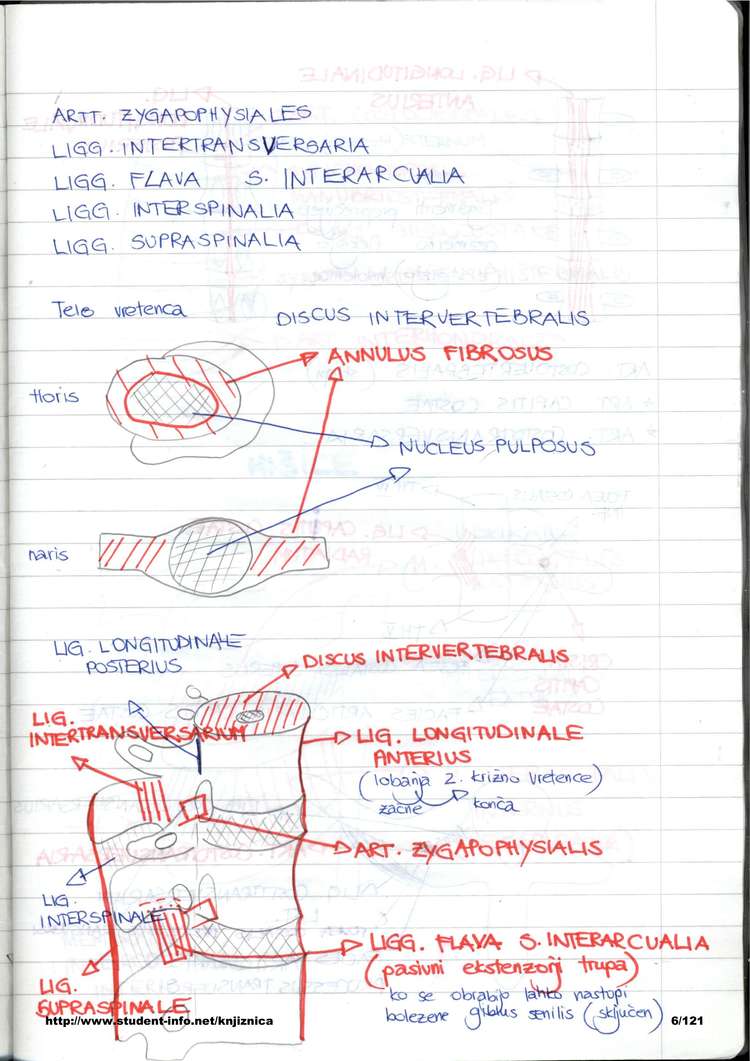 ARTT. ZYGAPOPHYSIALES
LIGG. INTERTRANSVERSARIA
LIGG. FLAVA S. INTERARCUALIA
LIGG. INTERSPINALIA
LIGG. SUPRASPINALIA
Telo vretenca
DISCUS INTERVERTEBRALIS
ANNULUS FIBROSUS
tloris
NUCLEUS PULPOSUS
naris
LIG. LONGITUDINALE
POSTERIUS
DISCUS INTERVERTEBRALIS
LIG.
INTERTRANSVERSARIUM
LIG. LONGITUDINALE
ANTERIUS
(lobanja 2. križno vretence)
začne konča
ART. ZYGAPOPHYSIALIS
LIG.
INTERSPINALE
LIGG. FLAVA S. INTERARCUALIA
(pasivni ekstenzorji trupa)
ko se obrabijo lahko nastopi
bolezene gibbus senilis (sključen)
LIG.
SUPRASPINALE
http://www.student-info.net/knjiznica
6/121